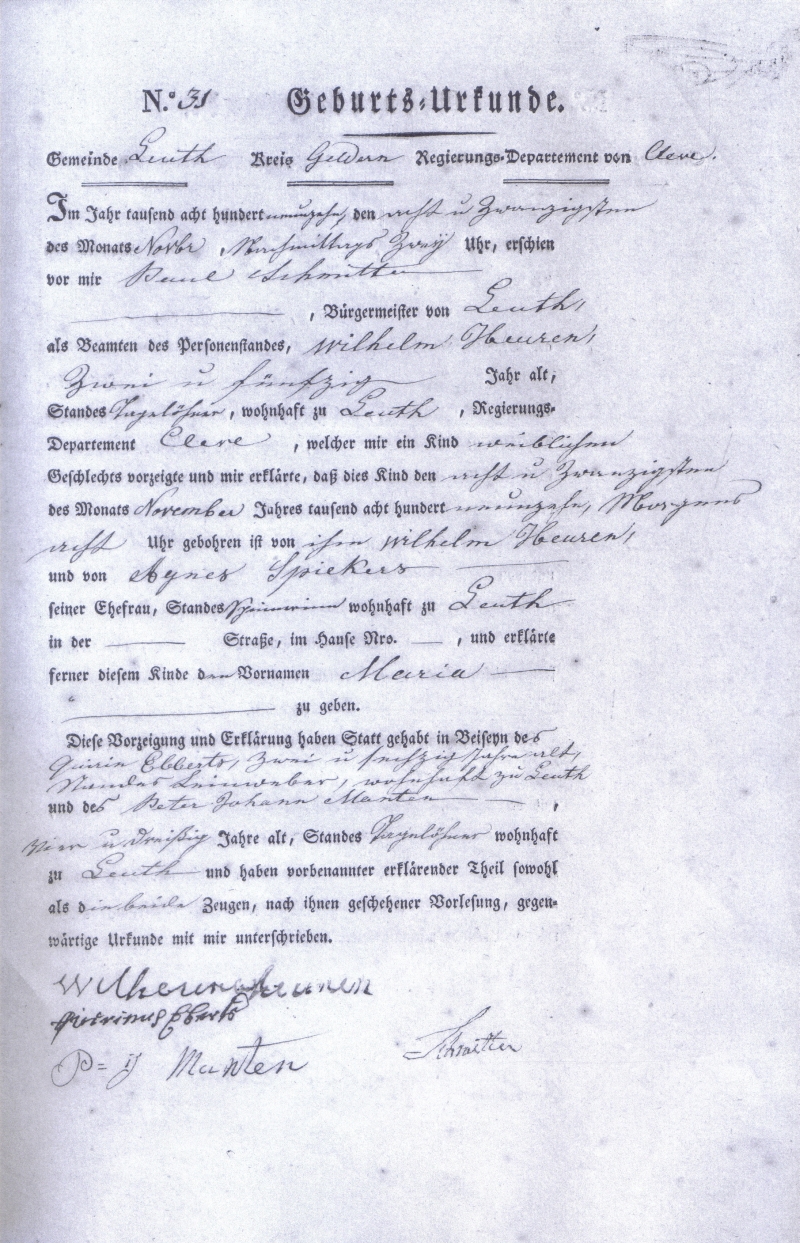 N.º 31 Geburts-Urkunde.
Gemeinde Leuth Kreis Geldern Regierungs-Departement von Cleve.
Im Jahr tausend acht hundert neunzehn, den acht u Zwanzigsten
des Monats Novbr, Nachmittags Zwey Uhr, erschien
vor mir Paul Schmitter
, Bürgermeister von Leuth,
als Beamten des Personenstandes, Wilhelm Heuren,
Zwei u fünfzig Jahr alt,
Standes Tagelöhner, wohnhaft zu Leuth, Regierungs-
Departement Cleve, welcher mir ein Kind weiblichen
Geschlechts vorzeigte und mir erklärte, daß dies Kind den acht u Zwanzigsten
des Monats November Jahres tausend acht hundert neunzehn, Morgens
acht Uhr gebohren ist von ihm Wilhelm Heuren,
und von Agnes Spiekers
seiner Ehefrau, Standes Spinnerinn wohnhaft zu Leuth
in der Straße, im Hause Nro. , und erklärte
ferner diesem Kinde den Vornamen Maria
zu geben.
Diese Vorzeigung und Erklärung haben Statt gehabt in Beiseyn des
Quirin Ebberts, Zwei u Jahre alt,
Standes Leinweber, wohnhaft zu Leuth
und des Peter Johann Manten,
Vier u Dreißig Jahre alt, Standes Tagelöhner wohnhaft
zu Leuth und haben vorbenannter erklärender Theil sowohl
als die beide Zeugen, nach ihnen geschehener Vorlesung, gegen-
wärtige Urkunde mit mir unterschrieben.
Heuren
Eberts
P= ij Manten Schmitter